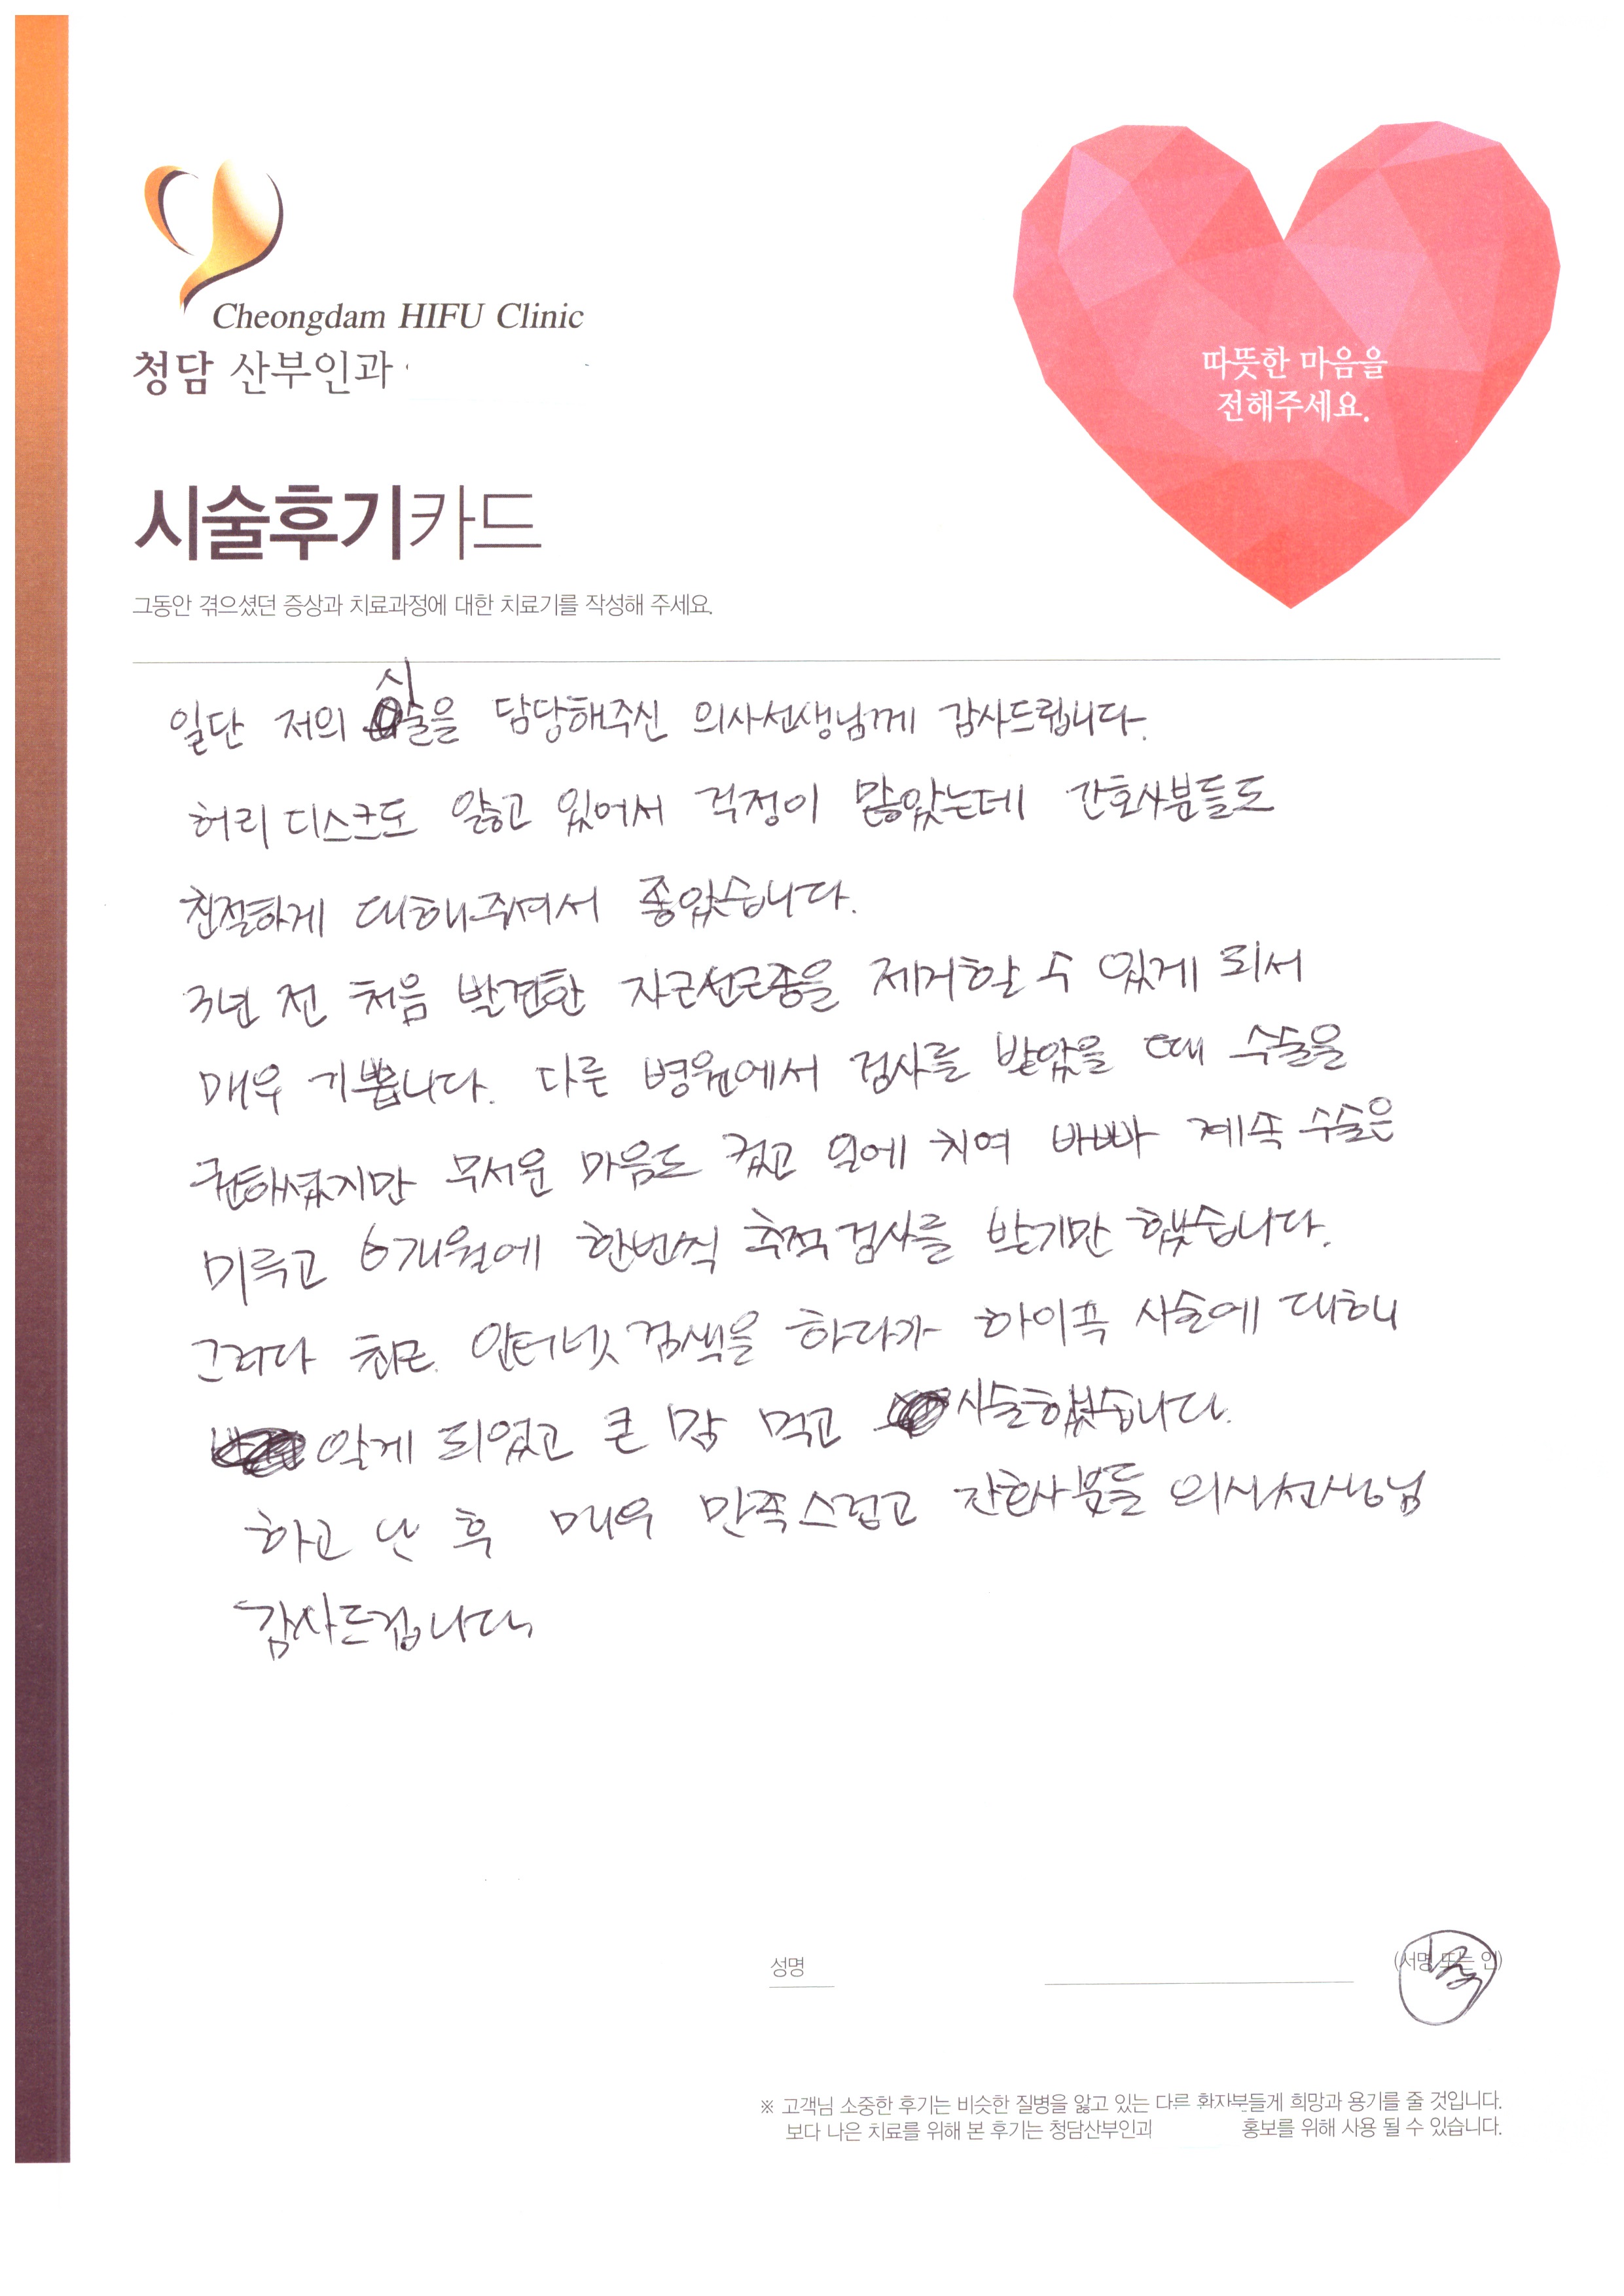 Cheongdam HIFU Clinic
청담 산부인과
따뜻한 마음을
전해주세요.
시술후기카드
그동안 겪으셨던 증상과 치료과정에 대한 치료기를 작성해 주세요.
일단 저의 시술을 담당해주신 의사선생님께 감사드립니다.
허리 디스크도 앓고 있어서 걱정이 많았는데 간호사분들도
친절하게 대해주셔서 좋았습니다.
3년 전 처음 발견한 자근선근종을 제거할 수 있게 되서
매우 기쁩니다. 다른 병원에서 검사를 받았을 때 수술을
권하셨지만 무서운 마음도 컸고 일에 치여 바빠 계속 수술은
미루고 6개월에 한번씩 추적검사를 받기만 했습니다.
그러다 최근 인터넷 검색을 하다가 하이푸 시술에 대해
알게 되었고 큰 맘 먹고 시술했습니다.
하고 난 후 매우 만족스럽고 간호사분들 의사선생님
감사드립니다
성명
(서명 또는 인)
※ 고객님 소중한 후기는 비슷한 질병을 앓고 있는 다른 환자분들게 희망과 용기를 줄 것입니다.
보다 나은 치료를 위해 본 후기는 청담산부인과 홍보를 위해 사용 될 수 있습니다.